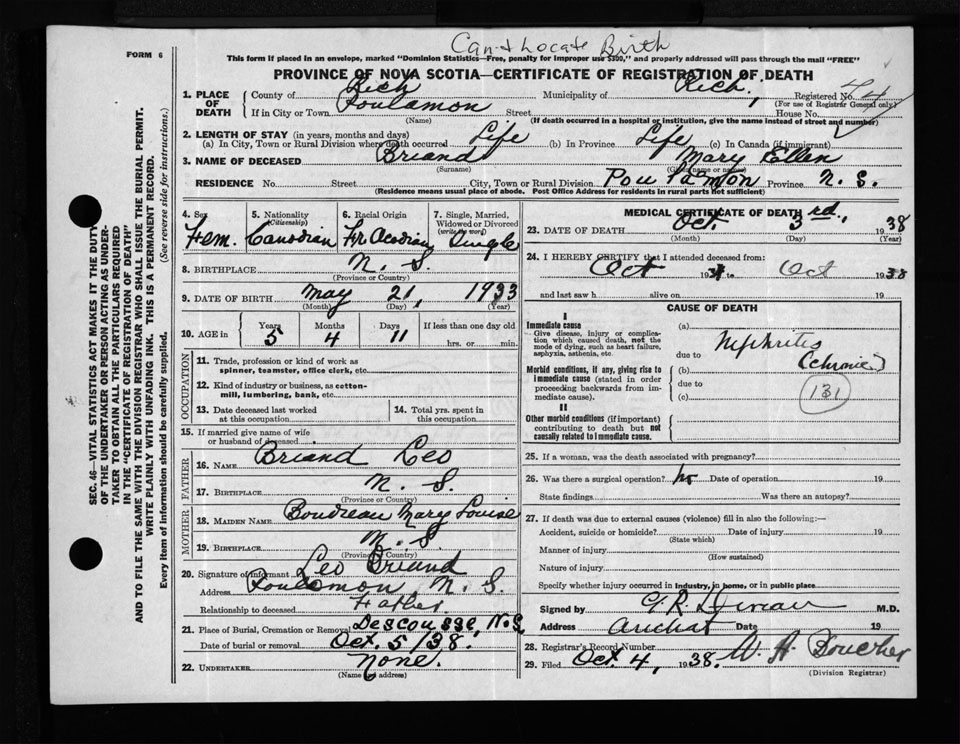 Can't Locate Birth
FORM 6
This form if placed in an envelope, marked "Dominion Statistics—Free, penalty for improper use $300," and properly addressed will pass through the mail "FREE"
PROVINCE OF NOVA SCOTIA—CERTIFICATE OF REGISTRATION OF DEATH
1. PLACE OF DEATH
County of Rich Municipality of Rich, Registered No.
(For use of Registrar General only)
If in City or Town Poulamon Street House No.
(Name) (If death occurred in a hospital or institution, give the name instead of street and number)
2. LENGTH OF STAY (in years, months and days)
(a) In City, Town or Rural Division where death occurred Life (b) In Province Life (c) In Canada (if immigrant)
3. NAME OF DECEASED Briand Mary Ellen
(Surname) (Given name or names)
RESIDENCE No. Street City, Town or Rural Division Poulamon Province N. S.
(Residence means usual place of abode. Post Office Address for residents in rural parts not sufficient)
4. Sex
Fem.
5. Nationality
(Citizenship)
Canadian
6. Racial Origin
Fr Acadian
7. Single, Married, Widowed or Divorced
(write the word)
Single
8. BIRTHPLACE N. S.
(Province or Country)
9. DATE OF BIRTH May 21, 1933
(Month) (Day) (Year)
10. AGE in
Years Months Days If less than one day old
5 4 11 hrs. or min.
OCCUPATION
11. Trade, profession or kind of work as spinner, teamster, office clerk, etc.
12. Kind of industry or business, as cotton-mill, lumbering, bank, etc.
13. Date deceased last worked at this occupation
14. Total yrs. spent in this occupation
15. If married give name of wife or husband of deceased
FATHER
16. NAME Briand Leo
17. BIRTHPLACE N. S.
(Province or Country)
MOTHER
18. MAIDEN NAME Boudreau Mary Louise
19. BIRTHPLACE N. S.
(Province or Country)
20. Signature of informant Leo Briand
Address Poulamon, N. S.
Relationship to deceased Father
21. Place of Burial, Cremation or Removal Descousse, N.S
Date of burial or removal Oct. 5/38.
22. UNDERTAKER None.
(Name and address)
MEDICAL CERTIFICATE OF DEATH
23. DATE OF DEATH Oct. 3rd., 1938
(Month) (Day) (Year)
24. I HEREBY CERTIFY that I attended deceased from:
Oct to Oct 1938
and last saw h alive on 19
CAUSE OF DEATH
I
Immediate cause
Give disease, injury or complication which caused death, not the mode of dying, such as heart failure, asphyxia, asthenia, etc.
Morbid conditions, if any, giving rise to immediate cause (stated in order proceeding backwards from immediate cause).
II
Other morbid conditions (if important) contributing to death but not causally related to immediate cause.
(a) Nephritis
due to
(b) (chronic)
due to
(c) 131
25. If a woman, was the death associated with pregnancy?
26. Was there a surgical operation? no Date of operation 19
State findings Was there an autopsy?
27. If death was due to external causes (violence) fill in also the following:—
Accident, suicide or homicide? Date of injury 19
(State which)
Manner of injury
(How sustained)
Nature of injury
Specify whether injury occurred in industry, in home, or in public place
Signed by M.D.
Address Arichat Date 19
28. Registrar's Record Number
29. Filed Oct 4, 1938. W. A. Boucher
(Division Registrar)
SEC. 46—VITAL STATISTICS ACT MAKES IT THE DUTY
OF THE UNDERTAKER OR PERSON ACTING AS UNDER-
TAKER TO OBTAIN ALL THE PARTICULARS REQUIRED
IN THE "CERTIFICATE OF REGISTRATION OF DEATH"
AND TO FILE THE SAME WITH THE DIVISION REGISTRAR WHO SHALL ISSUE THE BURIAL PERMIT.
WRITE PLAINLY WITH UNFADING INK. THIS IS A PERMANENT RECORD.
Every item of information should be carefully supplied. (See reverse side for instructions.)